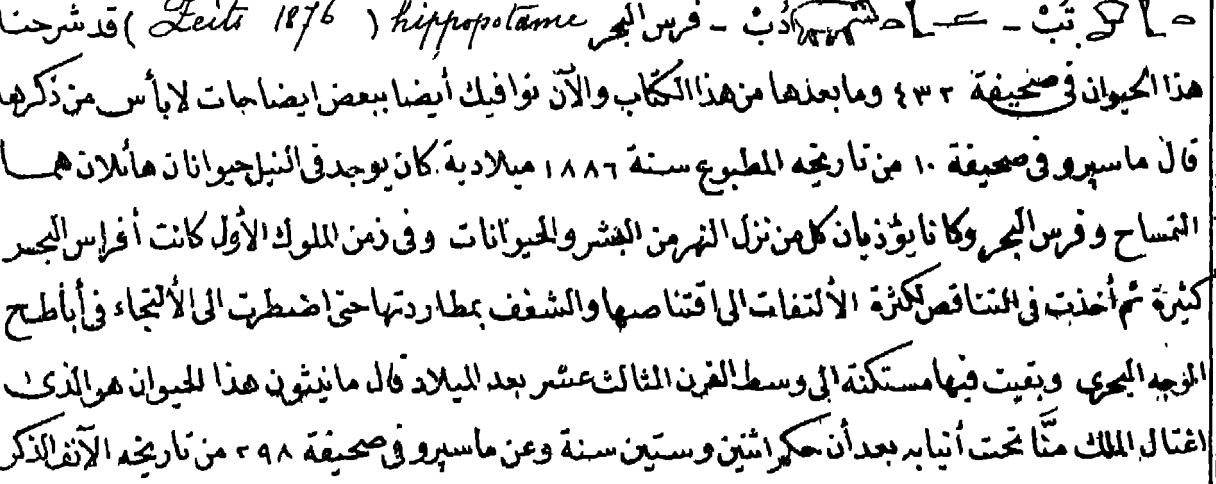 تَبْ - أُدْبْ - فرس البحر hippopotame (Zeits 1876) قد شرحنا
هذا الحيوان فى صحيفة ٤٣٢ وما بعدها من هذا الكتاب والآن نوافيك أيضا ببعض ايضاحات لابأس من ذكرها
قال ماسپرو فى صحيفة ١٠ من تاريخه المطبوع سنة ١٨٨٦ ميلادية. كان يوجد فى النيل حيوانان هائلان هما
التمساح وفرس البحر وكانا يؤذيان كل من نزل النهر من البشر والحيوانات وفى زمن الملوك الأول كانت أفراس البحر
كثيرة ثم أخذت فى التناقص لكثرة الألتفات الى اقتناصها والشغف بمطاردتها حتى اضطرت الى الألتجاء فى أباطح
الوجه البحرى وبقيت فيها مستكنة الى وسط القرن الثالث عشر بعد الميلاد قال مانيثون هذا الحيوان هو الذى
اغتال الملك منَّا تحت أنيابه بعد أن حكم اثنين وستين سنة وعن ماسپرو فى صحيفة ٢٩٨ من تاريخه الآنف الذكر